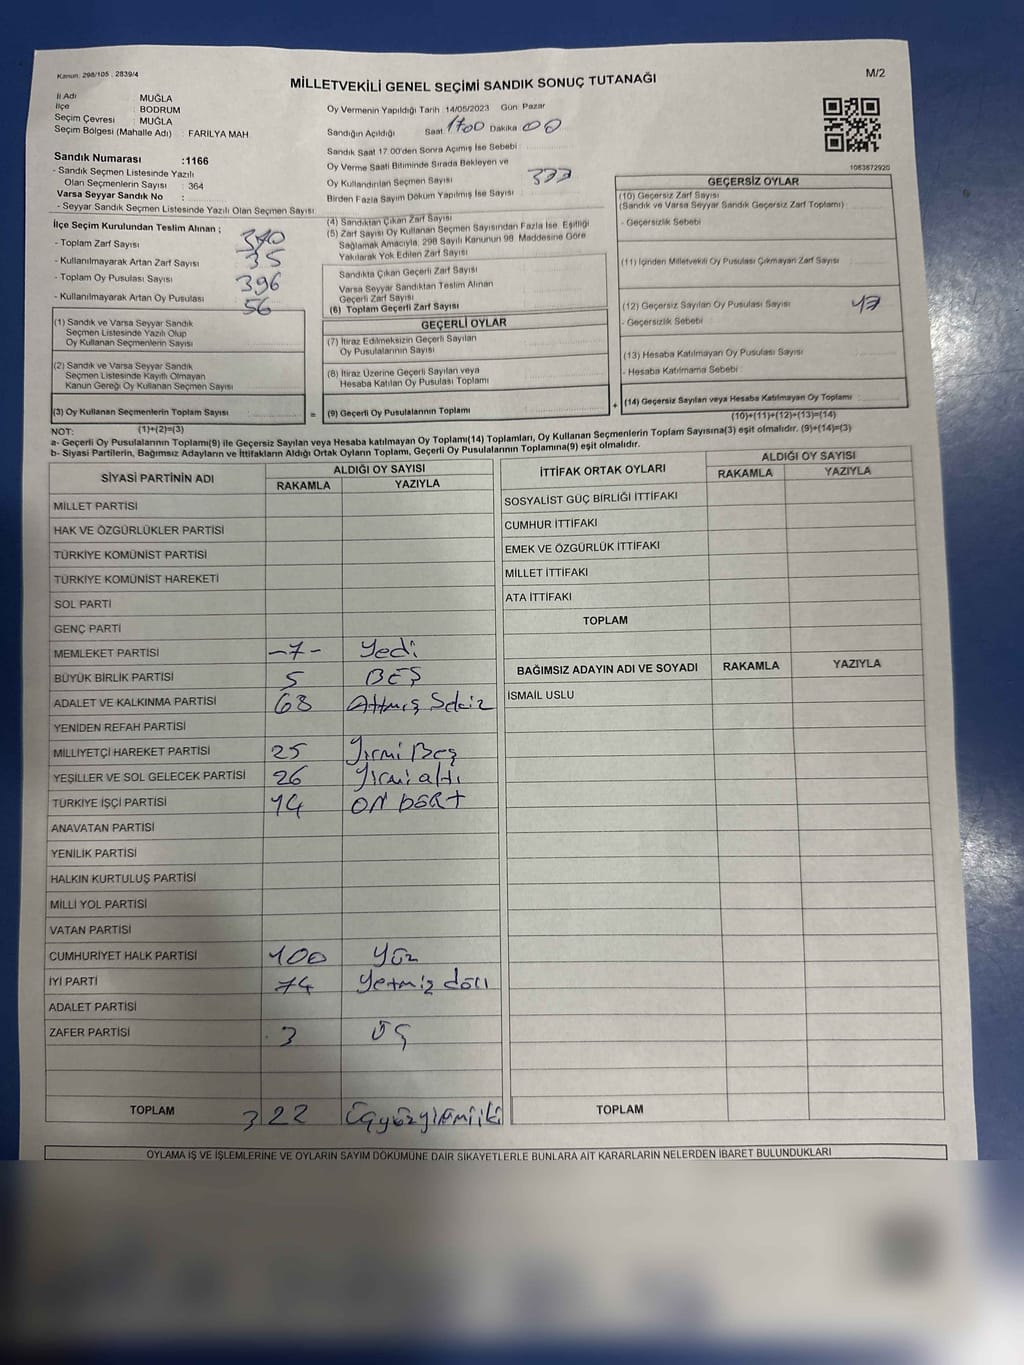 Kanun: 298/105 , 2839/4
M/2
MİLLETVEKİLİ GENEL SEÇİMİ SANDIK SONUÇ TUTANAĞI
İl Adı : MUĞLA
İlçe : BODRUM
Seçim Çevresi : MUĞLA
Seçim Bölgesi (Mahalle Adı) : FARİLYA MAH
Oy Vermenin Yapıldığı Tarih :14/05/2023 Gün: Pazar
Sandığın Açıldığı Saat 1700 Dakika 00
Sandık Saat 17:00'den Sonra Açımış İse Sebebi :
Oy Verme Saati Bitiminde Sırada Bekleyen ve
Oy Kullandırılan Seçmen Sayısı
Birden Fazla Sayım Döküm Yapılmış İse Sayısı :
1083872920
Sandık Numarası :1166
- Sandık Seçmen Listesinde Yazılı
Olan Seçmenlerin Sayısı : 364
Varsa Seyyar Sandık No :
- Seyyar Sandık Seçmen Listesinde Yazılı Olan Seçmen Sayısı:
İlçe Seçim Kurulundan Teslim Alınan ;
- Toplam Zarf Sayısı 370
- Kullanılmayarak Artan Zarf Sayısı 35
- Toplam Oy Pusulası Sayısı 396
- Kullanılmayarak Artan Oy Pusulası 56
(1) Sandık ve Varsa Seyyar Sandık
Seçmen Listesinde Yazılı Olup
Oy Kullanan Seçmenlerin Sayısı
(2) Sandık ve Varsa Seyyar Sandık
Seçmen Listesinde Kayıtlı Olmayan
Kanun Gereği Oy Kullanan Seçmen Sayısı
(3) Oy Kullanan Seçmenlerin Toplam Sayısı
(1)+(2)=(3)
(4) Sandıktan Çıkan Zarf Sayısı
(5) Zarf Sayısı Oy Kullanan Seçmen Sayısından Fazla İse, Eşitliği
Sağlamak Amacıyla, 298 Sayılı Kanunun 98. Maddesine Göre
Yakılarak Yok Edilen Zarf Sayısı
Sandıkta Çıkan Geçerli Zarf Sayısı
Varsa Seyyar Sandıktan Teslim Alınan
Geçerli Zarf Sayısı
(6) Toplam Geçerli Zarf Sayısı
GEÇERLİ OYLAR
(7) İtiraz Edilmeksizin Geçerli Sayılan
Oy Pusulalarının Sayısı
(8) İtiraz Üzerine Geçerli Sayılan veya
Hesaba Katılan Oy Pusulası Toplamı
= (9) Geçerli Oy Pusulalarının Toplamı +
GEÇERSİZ OYLAR
(10) Geçersiz Zarf Sayısı
(Sandık ve Varsa Seyyar Sandık Geçersiz Zarf Toplamı)
- Geçersizlik Sebebi :
(11) İçinden Milletvekili Oy Pusulası Çıkmayan Zarf Sayısı
(12) Geçersiz Sayılan Oy Pusulası Sayısı
- Geçersizlik Sebebi :
(13) Hesaba Katılmayan Oy Pusulası Sayısı
- Hesaba Katılmama Sebebi :
(14) Geçersiz Sayılan veya Hesaba Katılmayan Oy Toplamı
(10)+(11)+(12)+(13)=(14)
NOT:
a- Geçerli Oy Pusulalarının Toplamı(9) ile Geçersiz Sayılan veya Hesaba katılmayan Oy Toplamı(14) Toplamları, Oy Kullanan Seçmenlerin Toplam Sayısına(3) eşit olmalıdır. (9)+(14)=(3)
b- Siyasi Partilerin, Bağımsız Adayların ve İttifakların Aldığı Ortak Oyların Toplamı, Geçerli Oy Pusulalarının Toplamına(9) eşit olmalıdır.
SİYASİ PARTİNİN ADI ALDIĞI OY SAYISI
RAKAMLA YAZIYLA
MİLLET PARTİSİ
HAK VE ÖZGÜRLÜKLER PARTİSİ
TÜRKİYE KOMÜNİST PARTİSİ
TÜRKİYE KOMÜNİST HAREKETİ
SOL PARTİ
GENÇ PARTİ
MEMLEKET PARTİSİ -7- Yedi
BÜYÜK BİRLİK PARTİSİ 5 BEŞ
ADALET VE KALKINMA PARTİSİ 68 Altmış Sekiz
YENİDEN REFAH PARTİSİ
MİLLİYETÇİ HAREKET PARTİSİ 25 Yirmi Beş
YEŞİLLER VE SOL GELECEK PARTİSİ 26 Yirmi altı
TÜRKİYE İŞÇİ PARTİSİ 14 ON DÖRT
ANAVATAN PARTİSİ
YENİLİK PARTİSİ
HALKIN KURTULUŞ PARTİSİ
MİLLİ YOL PARTİSİ
VATAN PARTİSİ
CUMHURİYET HALK PARTİSİ 100 Yüz
İYİ PARTİ 74
ADALET PARTİSİ
ZAFER PARTİSİ 3 ÜÇ
TOPLAM 322 Üçyüzyirmiiki
İTTİFAK ORTAK OYLARI ALDIĞI OY SAYISI
RAKAMLA YAZIYLA
SOSYALİST GÜÇ BİRLİĞİ İTTİFAKI
CUMHUR İTTİFAKI
EMEK VE ÖZGÜRLÜK İTTİFAKI
MİLLET İTTİFAKI
ATA İTTİFAKI
TOPLAM
BAĞIMSIZ ADAYIN ADI VE SOYADI RAKAMLA YAZIYLA
İSMAİL USLU
TOPLAM
OYLAMA İŞ VE İŞLEMLERİNE VE OYLARIN SAYIM DÖKÜMÜNE DAİR ŞİKAYETLERLE BUNLARA AİT KARARLARIN NELERDEN İBARET BULUNDUKLARI